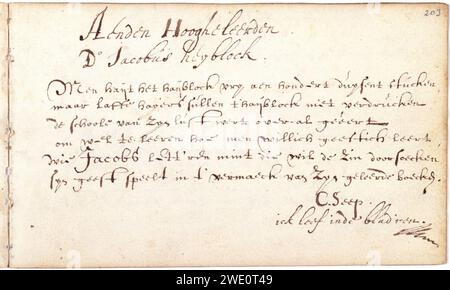 203
Aenden Hoogheleerden
Dr Jacobus heyblock.
Men hayt het hayblock vry aen hondert duysent stucken
maar laffe hayers sullen t'hayblock niet verdrucken
de schoole van Zyn lust wert overal geëert
om wel te leeren hoe men willich geestich leert
wie Jacobs lett'ren mint die wil de Zin doorsoecken
syn geest speelt in t' vermaeck van Zyn geleerde boecken
C. Seep.
ick leef inde bladren.
alamy
Image ID: 2WE0T49
www.alamy.com